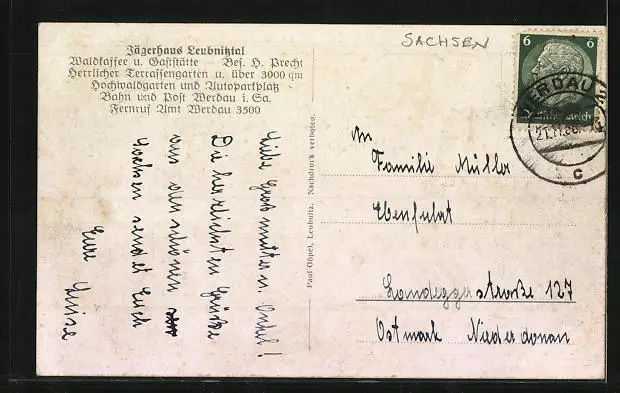 Jägerhaus Leubnitztal
Waldkaffee u. Gaststätte Bes. H. Precht
Herrlicher Terrassengarten u. über 3000 qm
Hochwaldgarten und Autoparkplatz
Bahn und Post Werdau i. Sa.
Fernruf Amt Werdau 3500
Liebe Grossmutter u. Onkel!
Die herzlichsten Grüße
aus dem schönen
Sachsen sendet Euch
Eure Luise
Paul Göpel, Leubnitz. Nachdruck verboten.
SACHSEN
6 6
Deutsches Reich
WERDAU
21.11.38
c
An
Familie Müller
Ebenfurt
Landeggerstraße 127
Ostmark Niederdonau